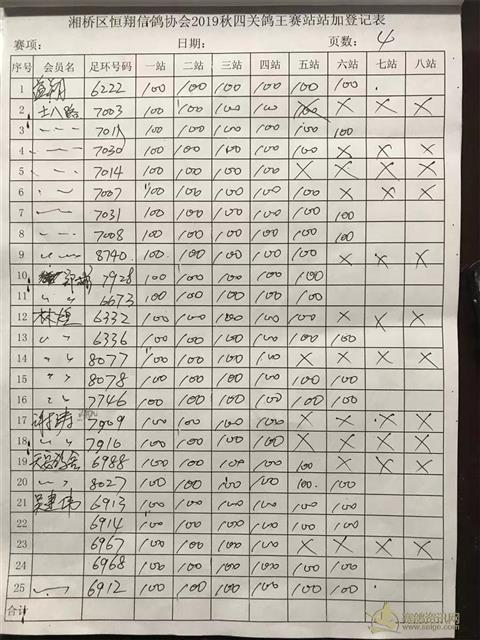 湘桥区恒翔信鸽协会2019秋四关鸽王赛站站加登记表
赛项: 日期: 页数: 4
序号 会员名 足环号码 一站 二站 三站 四站 五站 六站 七站 八站
1 6222 100 100 100 100 100 100
2 7003 100 100 100 100 100 X X X
3 7011 100 100 100 100 100 100
4 7030 100 100 100 100 100 X X X
5 7014 100 100 100 100 X X X X
6 7007 100 100 100 100 100 X X X
7 7031 100 100 100 100 100 100
8 7008 100 100 100 100 100 100
9 8740 100 100 100 100 100 X X X
10 7928 100 100 100 100 100
11 6673 100 100 100 100 100
12 林恒 6332 100 100 100 100 100 X X X
13 6336 100 100 100 100 100 100
14 8077 100 100 100 100 X X X X
15 8078 100 100 100 100 100 100
16 7746 100 100 100 100 100 100
17 谢涛 7909 100 100 100 100 X X X X
18 7910 100 100 100 100 X X X X
19 6988 100 100 100 100 100 X X X
20 8027 100 100 100 100 100 100
21 吴建伟 6913 100 100 100 100 100 100
22 6914 100 100 100 100 100 100
23 6967 100 100 100 100 X X X X
24 6968 100 100 100 100 100 100
25 6912 100 100 100 100 100 100
合计
赛鸽资讯网
www.saige.com